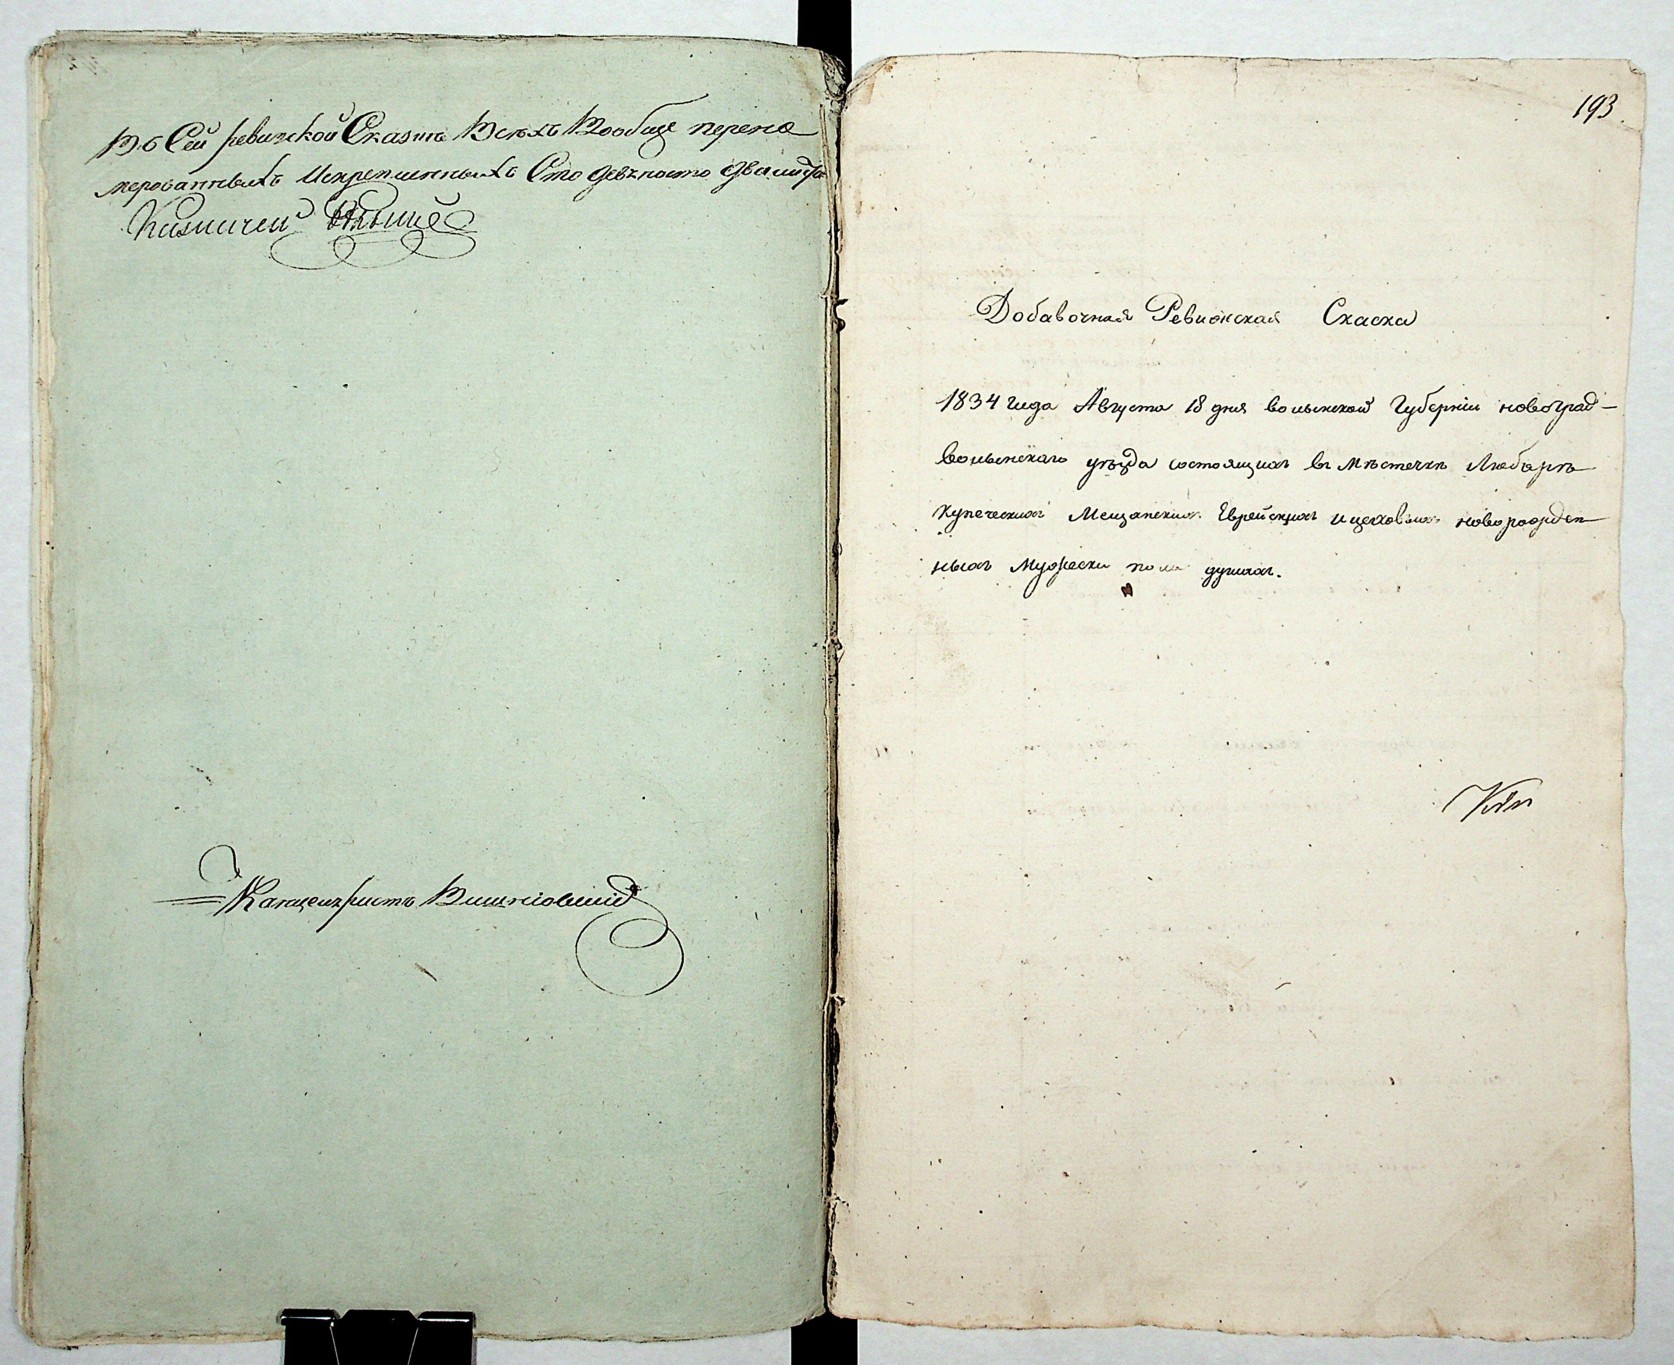 Въ Сей ревизкой Сказке Всехъ Вообще перено
мерованныхъ Искрепленныхъ Сто девяносто два листа
Казначей
Канцеляристъ Вишнiовский
193
Добавочная Ревизская Скаска
1834 года Августа 18 дня волынской Губернiи новоград-
волынскаго уезда состоящихъ въ местечкѣ Любарѣ
купеческихъ Мещанскихъ Еврейскихъ и цеховыхъ новорожден
ныхъ Мужеска пола душахъ.